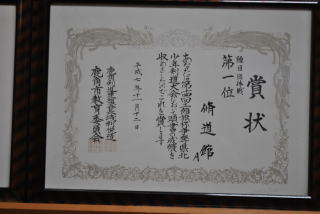 賞状
種目団体戦
第一位
脩道館A
あなたは第十四回相撲杯争奪県北
少年剣道大会において頭書の成績を
収めましたのでこれを賞します
平成七年十一月十二日
鹿角市教育委員会